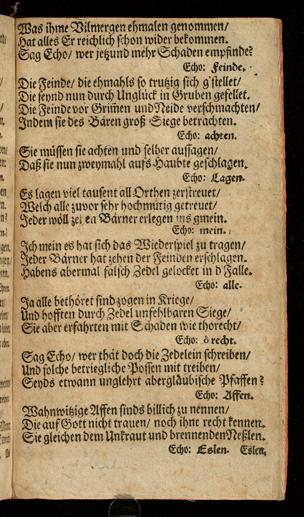 Was ihme Vilmergen ehmalen genommen/
Hat alles Er reichlich schon wider bekommen.
Sag Echo/ wer jetzund mehr Schaden empfinde?
Echo: Feinde.
Die Feinde/ die ehmahls so trutzig sich g'stellet/
Die seynd nun durch Unglück in Gruben gefellet.
Die Feinde vor Grimmen und Neide verschmachten/
Indem sie des Bären groß Siege betrachten.
Echo: achten.
Sie müssen sie achten und selber aussagen/
Daß sie nun zweymahl aufs Haubte geschlagen.
Echo: Lagen.
Es lagen viel tausent all Orthen zerstreuet/
Welch alle zuvor sehr hochmütig getreuet/
Jeder wöll zehen Bärner erlegen ins gmein.
Echo: mein.
Ich mein es hat sich das Wiederspiel zu tragen/
Jeder Bärner hat zehen der Feinden erschlagen.
Habens abermal falsch Zedel gelocket in d'Falle.
Echo: alle.
Ja alle bethöret sind zogen in Kriege/
Und hofften durch Zedel unfehlbaren Siege/
Sie aber erfahrten mit Schaden wie thorecht/
Echo: ö recht.
Sag Echo/ wer thät doch die Zedelein schreiben/
Und solche betriegliche Possen mit treiben/
Seynds etwann unglehrt abergläubische Pfaffen?
Echo: Affen.
Wahnwitzige Affen sinds billich zu nennen/
Die auf Gott nicht trauen/ noch ihne recht kennen.
Sie gleichen dem Unkraut und brennenden Neßlen.
Echo: Eslen. Eslen.